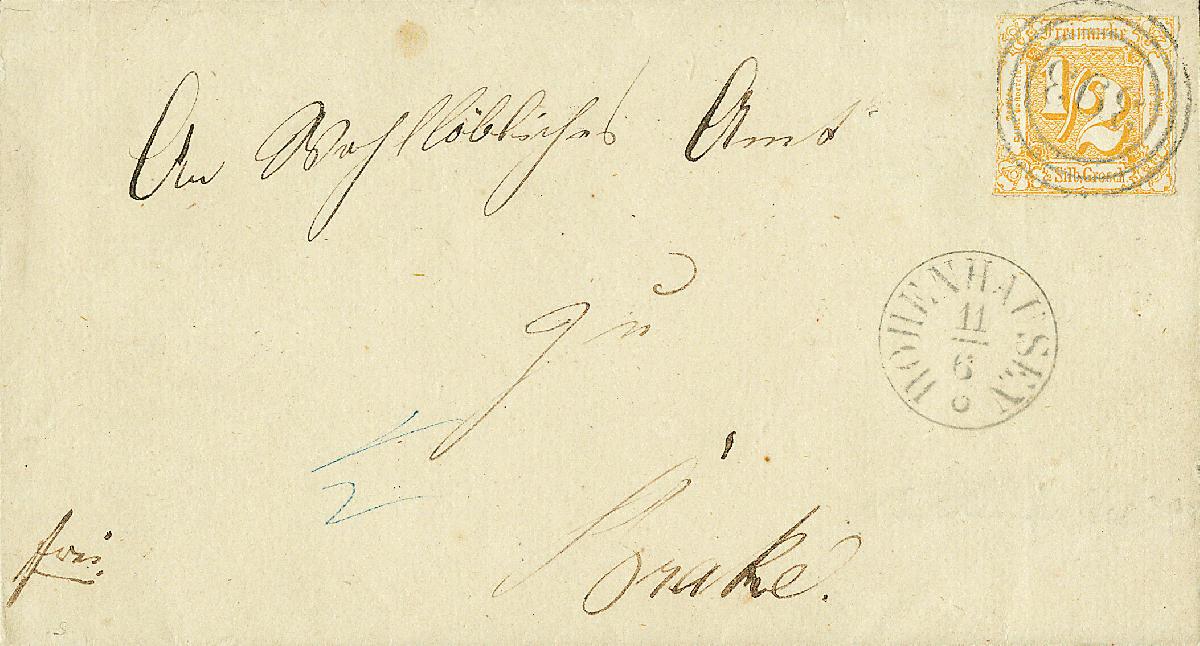 Freimarke
1/2
Silb. Grosch.
An Wohllöbliches Amt
HOHENHAUSEN
11
6
zu
1/2
Brake.
frei.